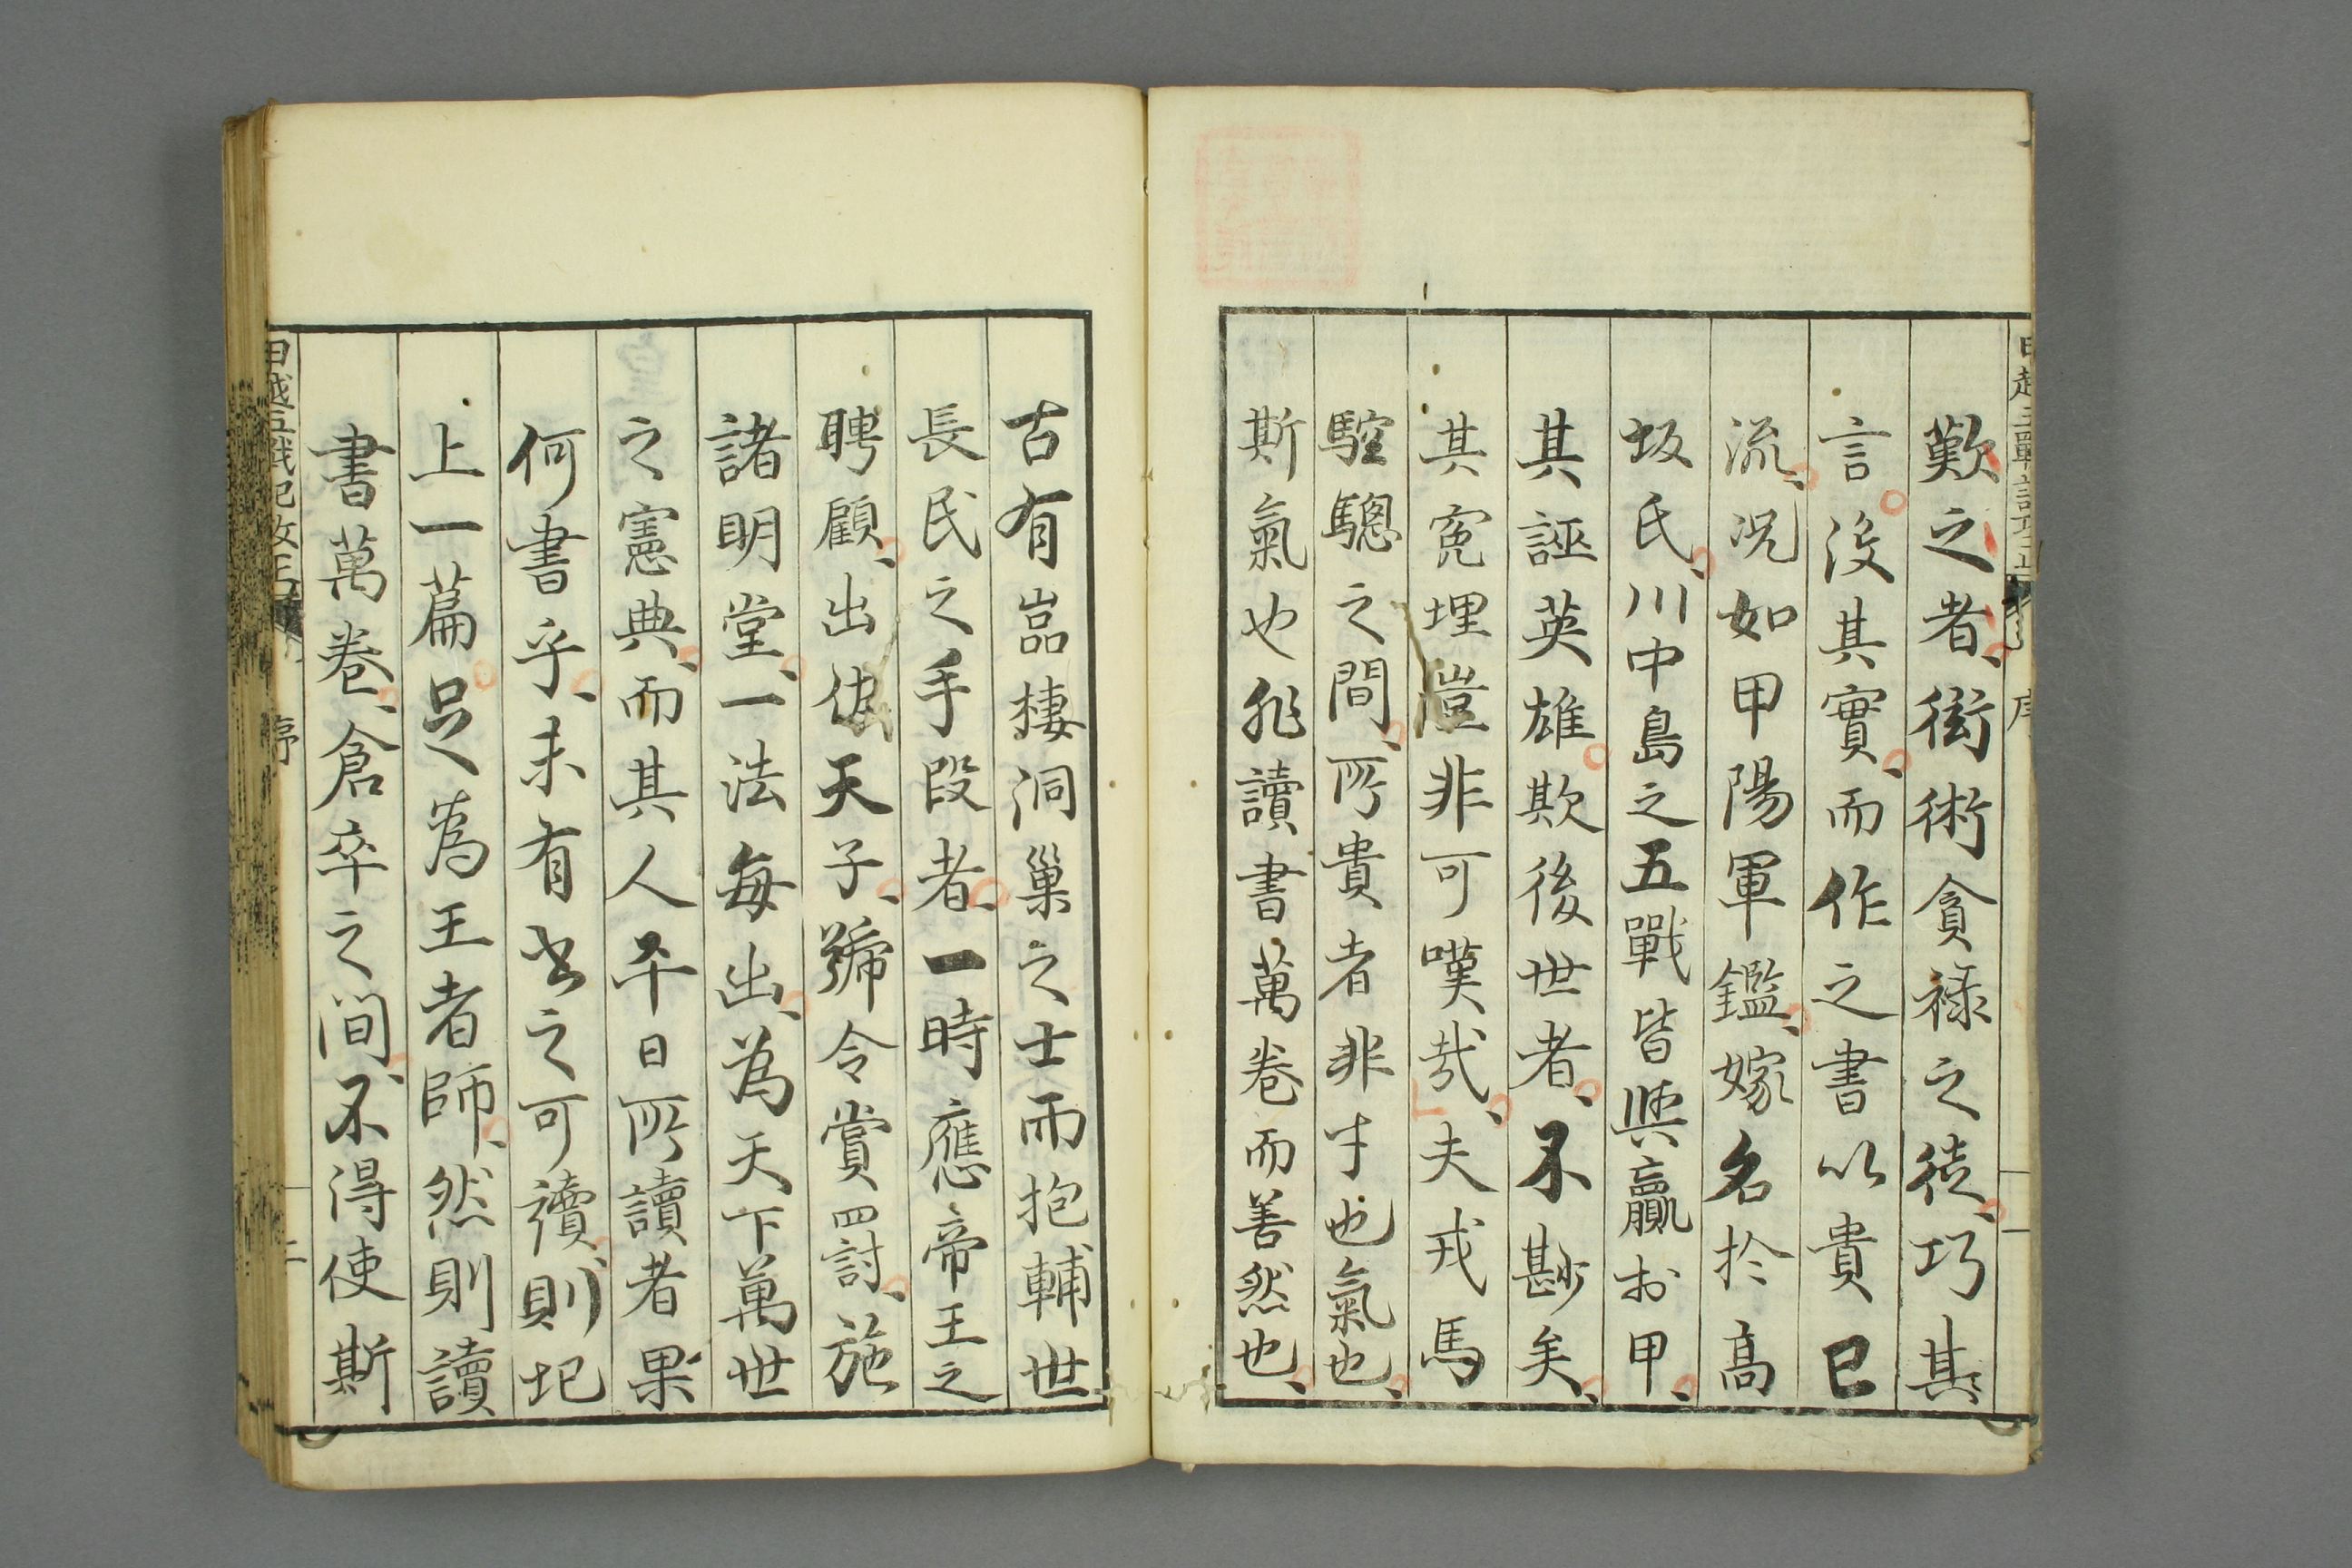 歎之者、衒術貪祿之徒、巧其
言。没其實、而作之書以貴已
流、况如甲陽軍鑑、嫁名於高
坂氏、川中島之五戰皆與贏於甲、
其誣英雄。欺後世者、不尠矣、
其寃埋。豈非可嘆哉、夫戎馬
騖驄之間、所貴者非才也氣也、
斯氣也非讀書萬卷而善然也、
古有嵓棲洞巢之士而抱輔世
長民之手段者、一時應帝王之
聘顧、出使天子、號令賞罰、施
諸明堂、一法每出、為天下萬世
之憲典、而其人平日所讀者果
何書乎、未有書之可讀、則圯
上一篇足為王者師、然則讀
書萬卷、倉卒之間、不得使斯
甲越五戰記改正 序 二